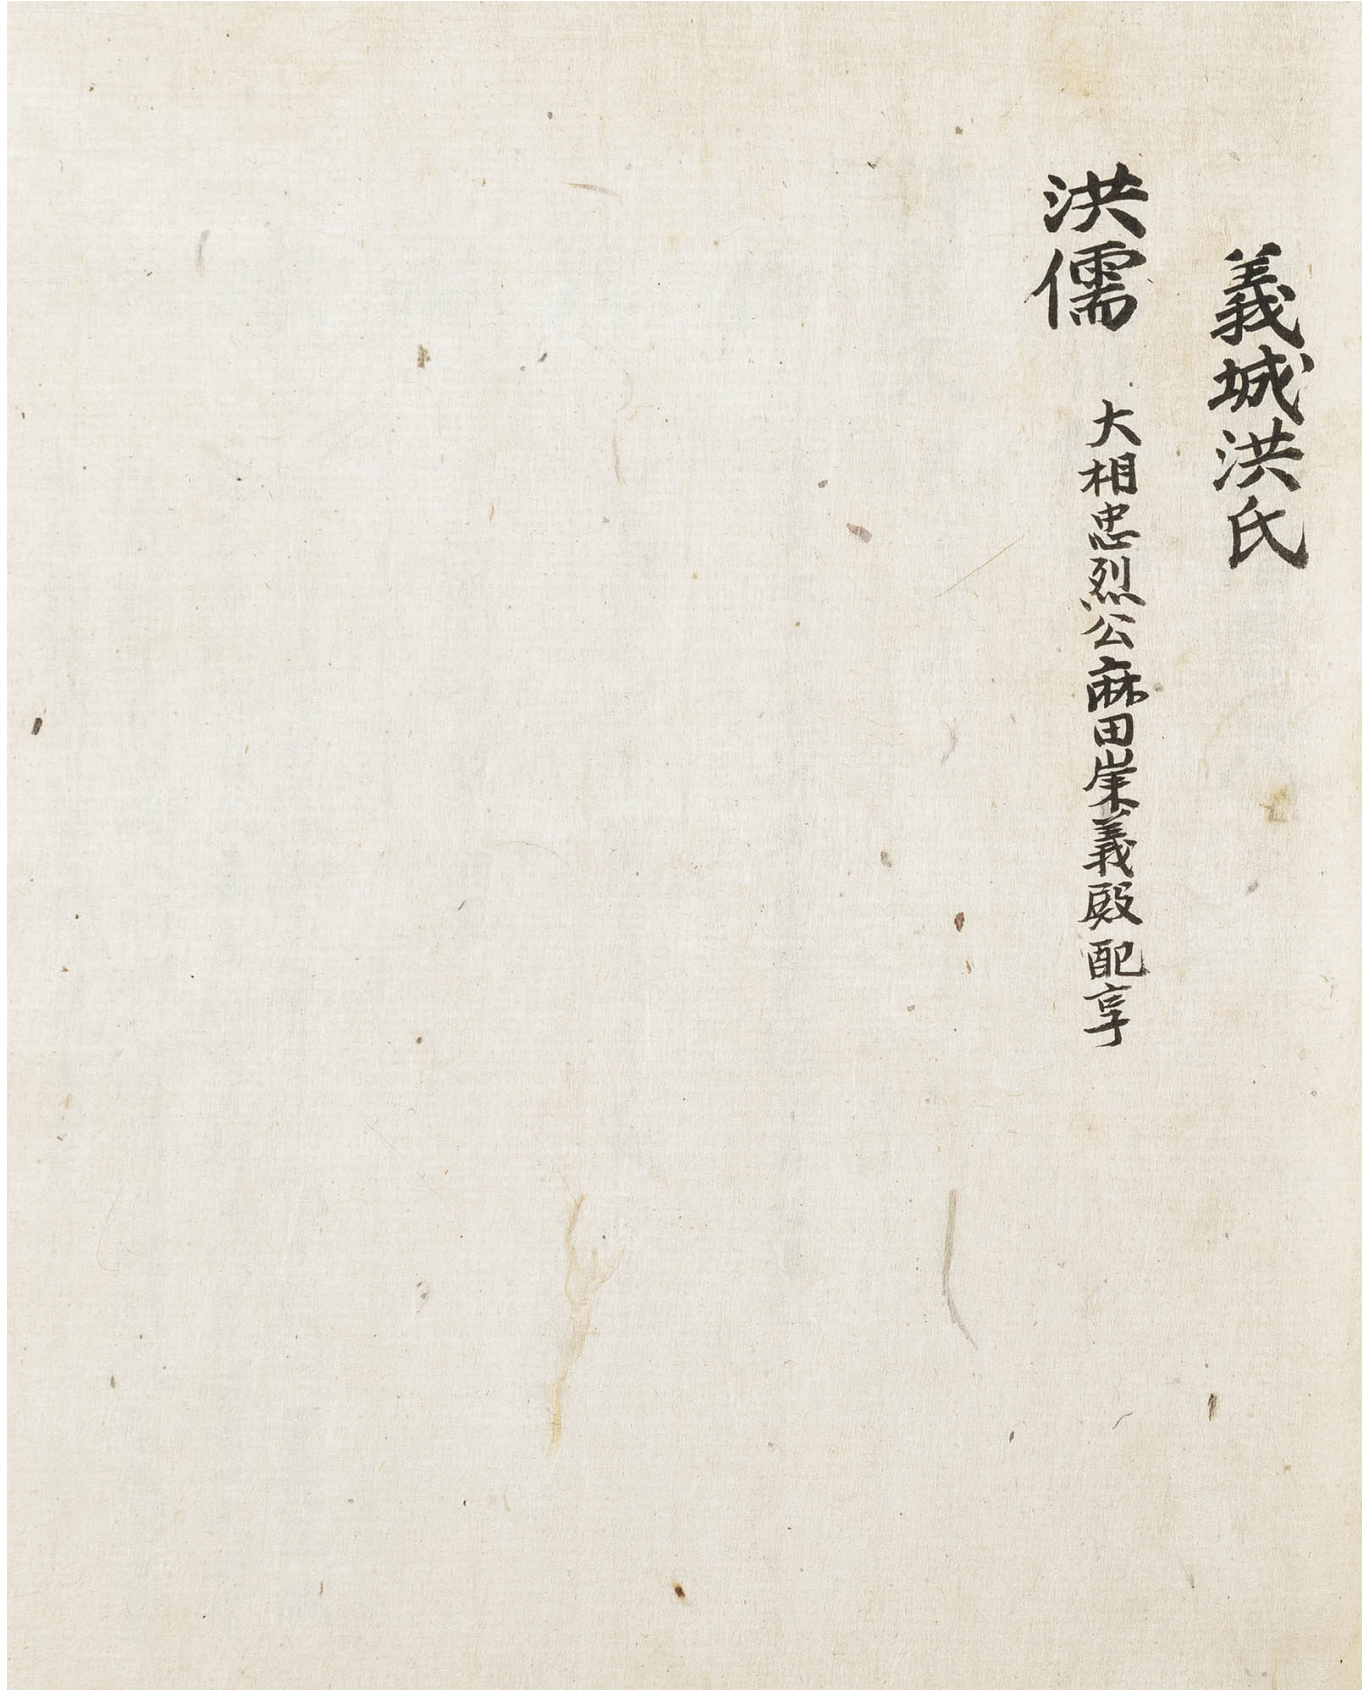 義城洪氏
洪儒
大相忠烈公麻田崇義殿配享